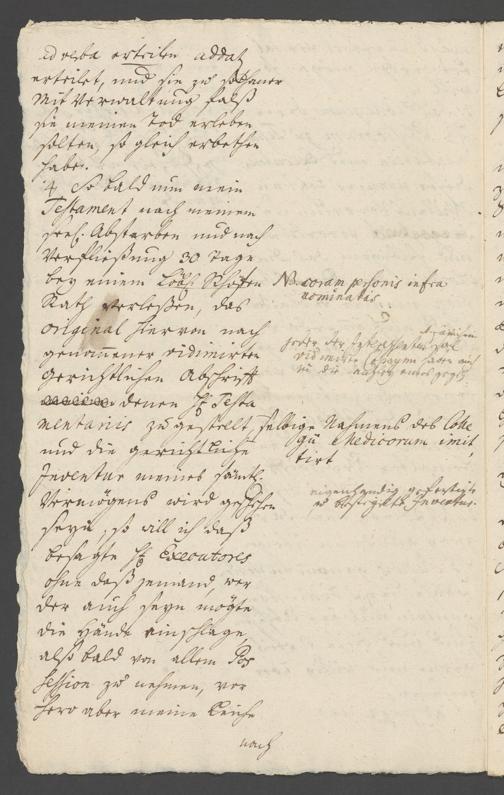 ad reba erteilen addatz
ertheilet, und sie zu solchaner
Mit Verwaltung falß
sie meinen Tod erleben
solten, so gleich erbethen
habe.
4. So bald nun mein
Testament nach meinem
seel. Absterben und nach
Verfließung 30 Tage
bey einem Löbl. Schöffen
Rath verleßen, das
Original hiervon nach
genommener vidimirten
gerichtlichen Abschrifft
denen HE. Testa
mentariis zu gestellt,
und die gerichtliche
Inventur meines sämtl.
Vermögens wird geschehen
seyn, so will ich daß
besagte HE. Executores
ohne daß jemand, wer
der auch seyn mögte
die Hände einschlage,
alß bald von allem Pos
session zu nehmen, vor
hero aber meine Leiche
nach
NB coram personis infra
nominatis.
jeder der
vidimirte Copeyen
selbige Nahmens des Colle
gii Medicorum imit
tirt
eigenhändig gefertigte
Inventur.